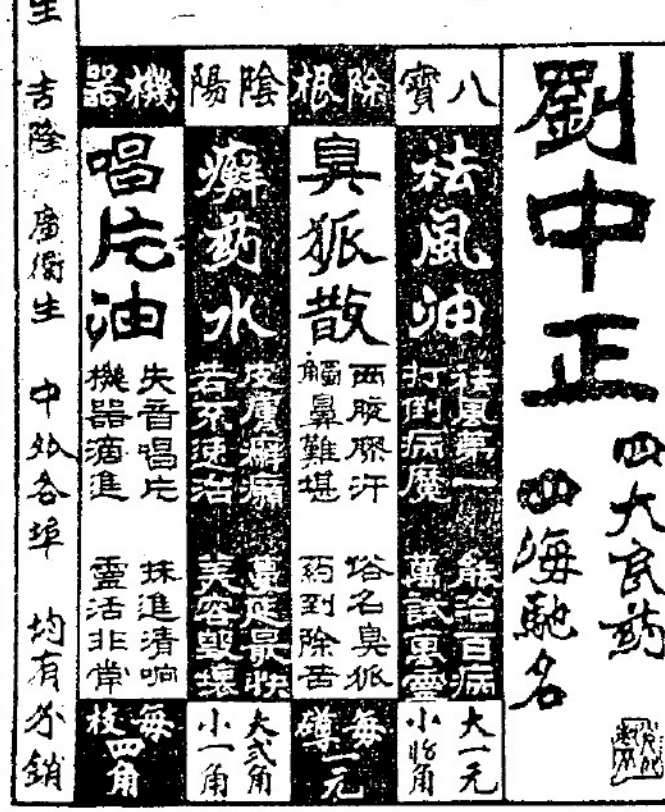 劉中正
四大良药
四海馳名
八寶
祛風油
祛風第一 能治百病
打倒病魔 萬試萬靈
大一元
小弍角
除根
臭狐散
両腋膠汗 俗名臭狐
觸鼻難堪 药到除苦
每罇一元
陰陽
癬药水
皮膚癬癩 蔓延最快
若不速治 美容毀壞
大弍角
小一角
機器
唱片油
失音唱片 抹進清响
機器滴進 靈活非常
每枝四角
生 吉隆 廣衛生 中外各埠 均有分銷